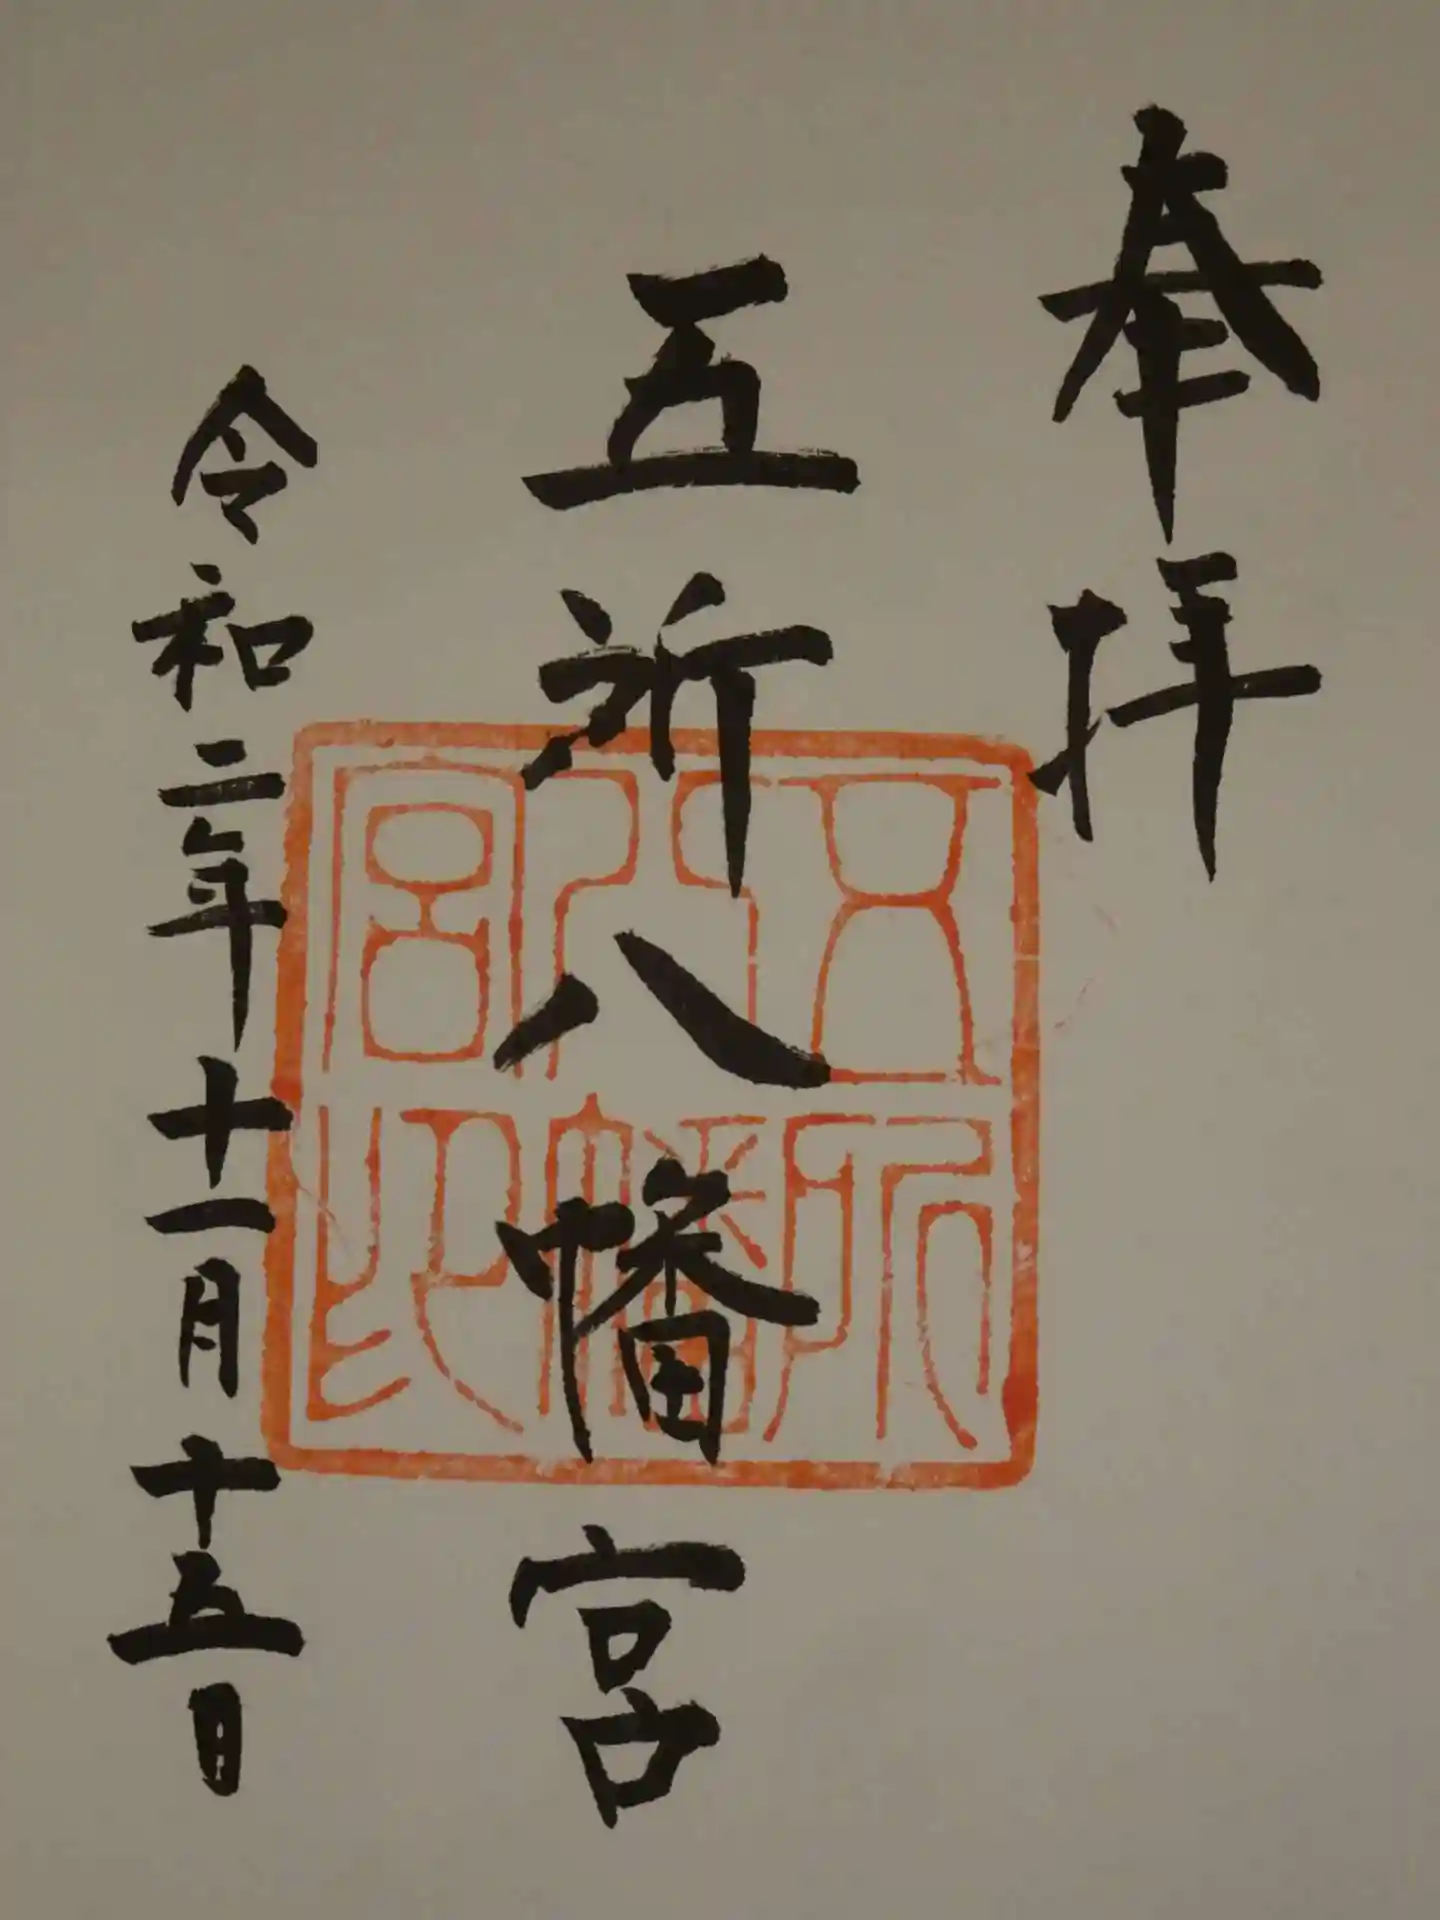 奉拝
五所八幡宮
令和二年十一月十五日
五所八幡宮印